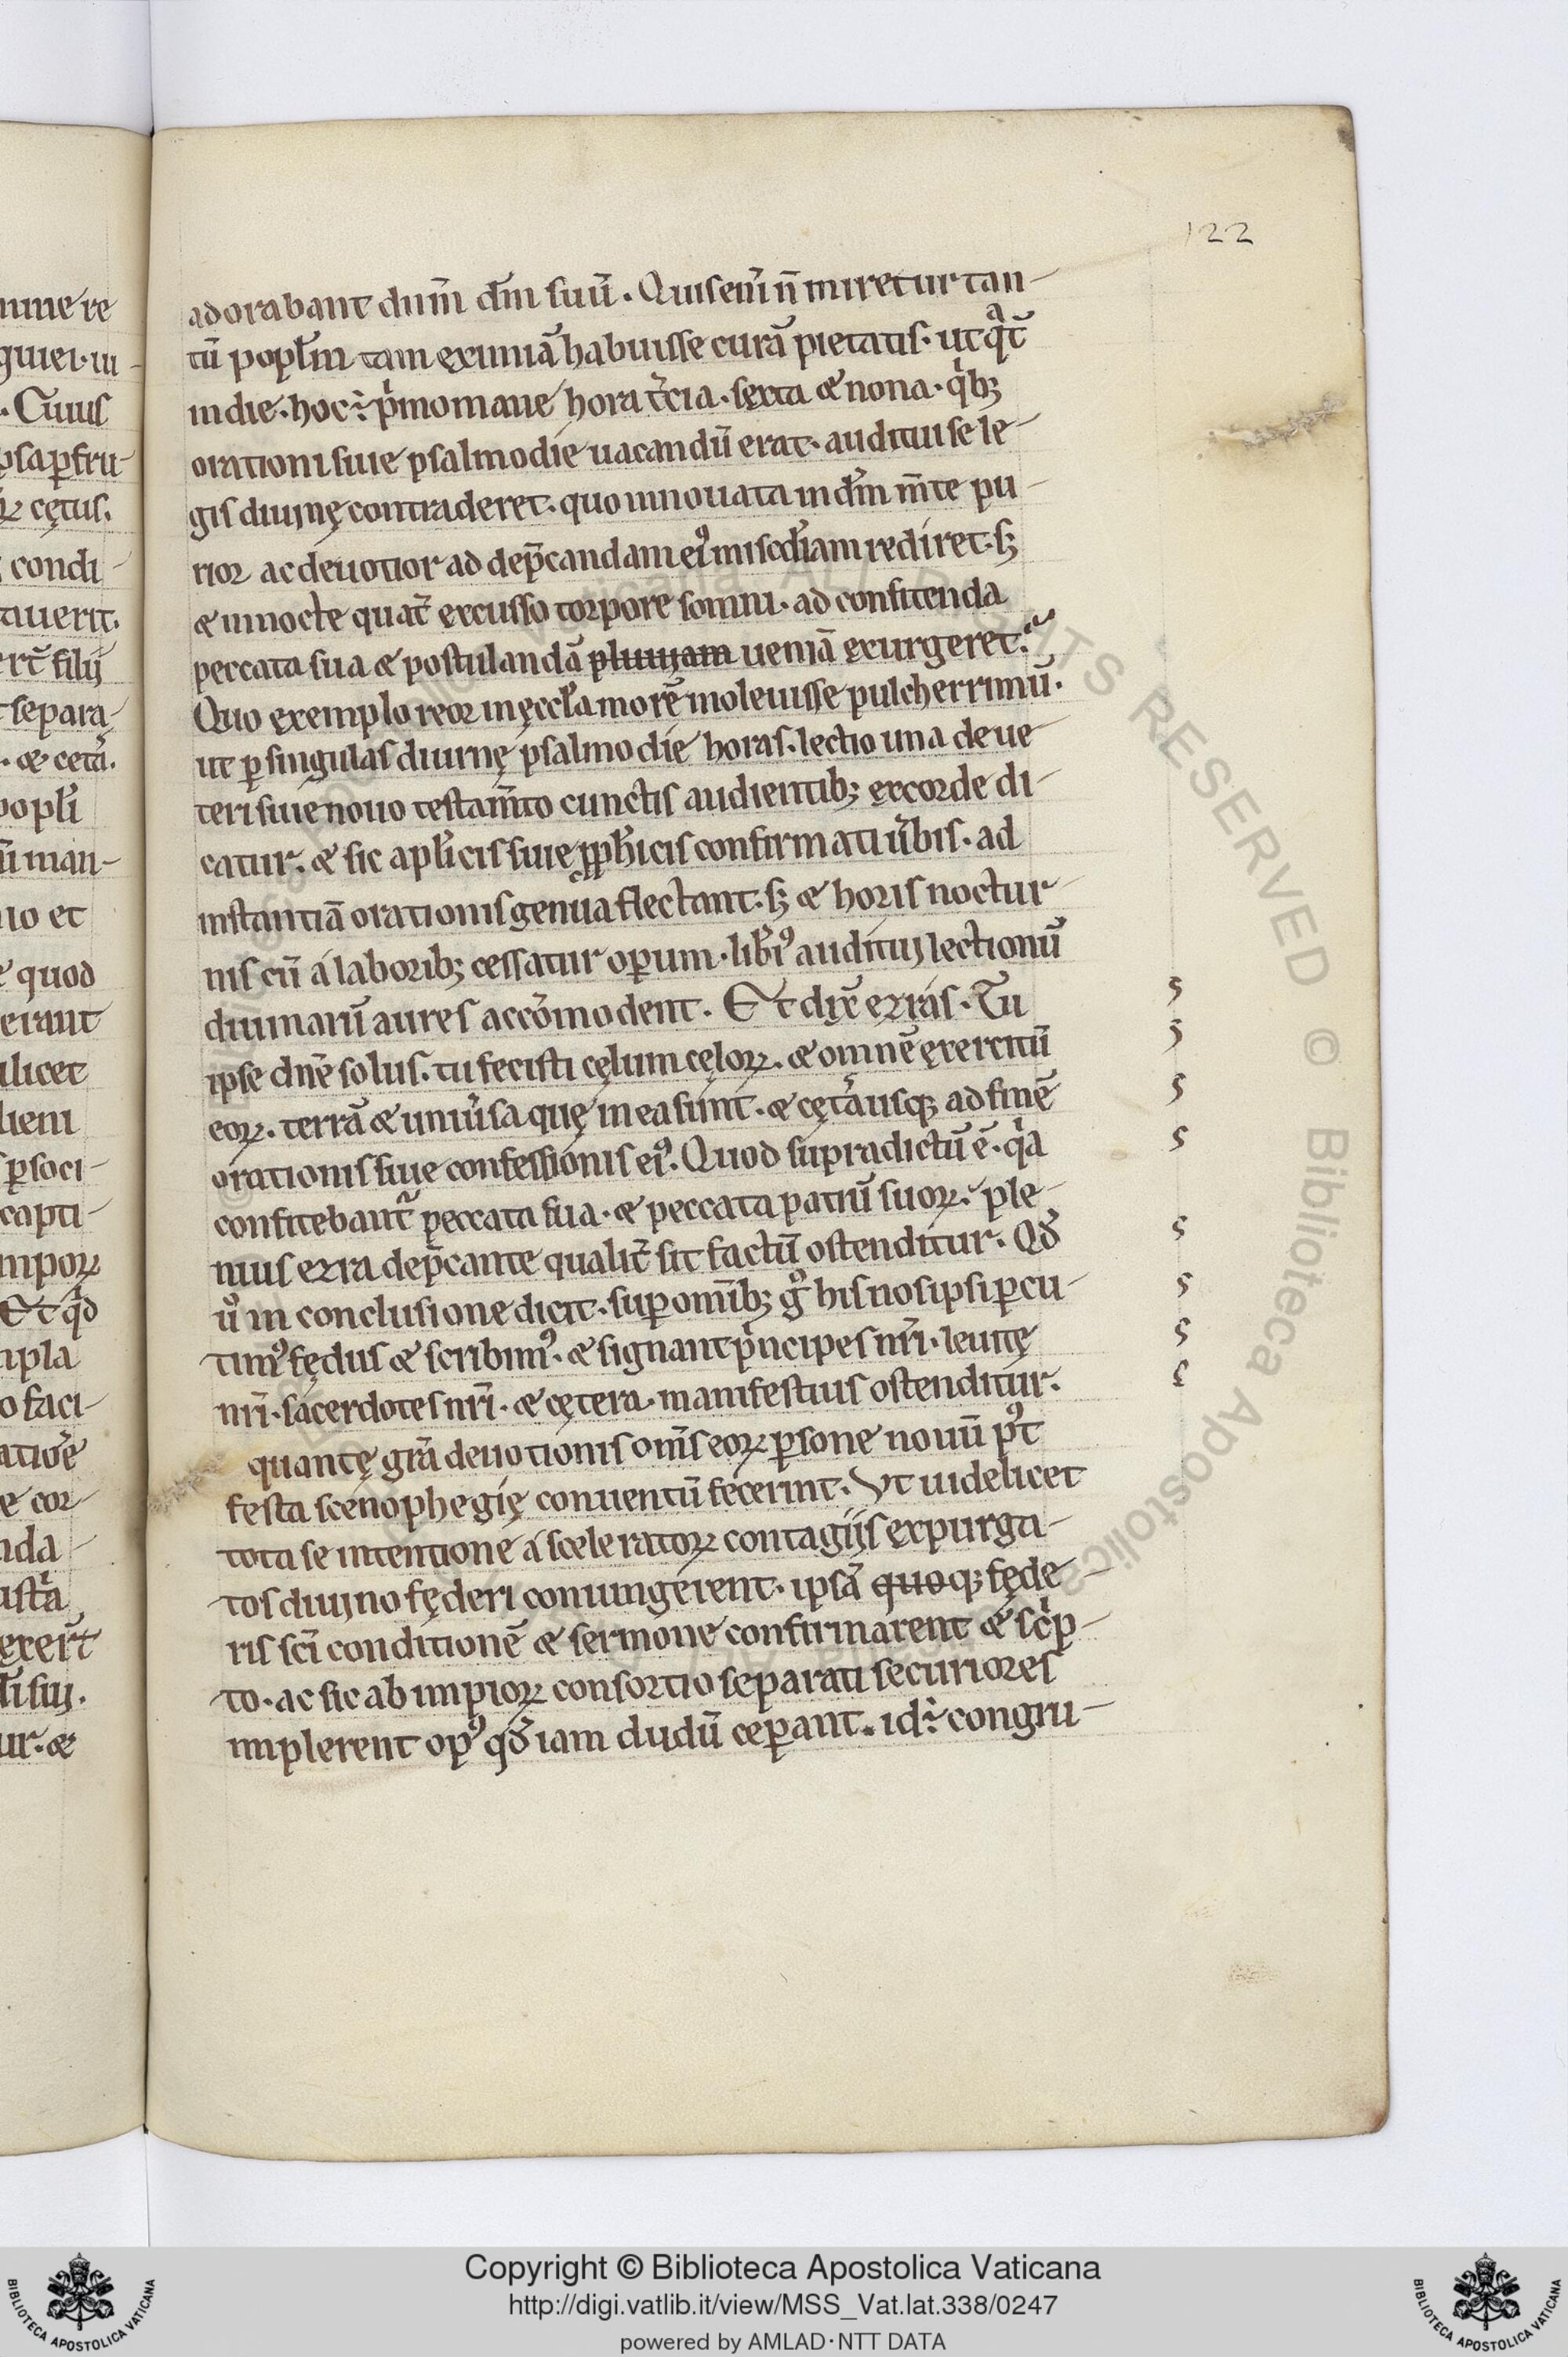 122
adorabant dnm̄ dm̄ suū. Quis eni̅ n̄ miretur tan-
tū popl̅m tam exımiā habuisse curā pietatis. ut qͣt̄
in die. hoc ÷ pͥmo mane hora t̄cia. sexta & nona. qͥb;
orationi siue psalmodie uacandū erat. auditui se le-
gis diuinę contraderet. quo innouata in dm̄ m̄te pu-
rior ac deuotior ad dep̄candam eiꝰ misedi̅am rediret. s;
& in nocte quat̄ excusso torpore somni. ad confitenda
peccata sua & postulandā pluuiam ueniā exurgeret.
Quo exemplo reor in ęccl̅a morē moleuisse pulcherrimū.
ut ꝑ singulas diurnę psalmodie horas. lectio una de ue-
teri siue nouo testam̄to cunctis audientib; ex corde di-
catur. & sic apl̅icis siue ꝓph̅icis confirmati u̅bis. ad
instantiā orationis genua flectant. s; & horis noctur-
nis cū a laborib; cessatur oꝑum. lib̅iꝰ auditui lectionū
diuinarū aures accōmodent. Et dix̄ ezras. Tu
ipse dn̄e solus. tu fecisti cęlum cęloꝝ. & omnē exercitū
eoꝝ. terrā & uniu̅sa quę in ea sunt. & cęt̄a usq; ad finē
orationis siue confessionis eiꝰ. Quod supradictū ē. qͥa
confitebant̄ peccata sua. & peccata patrū suoꝝ. ple-
nius ezra dep̄cante qualit̄ sit factū ostenditur. Qd̄
ů in conclusione dicit. suꝑ omīb; g̊ his nos ipsi ꝑcu-
timꝰ fędus & scribimꝰ. & signant pͥncipes nr̄i. leuitę
nr̄i. sacerdotes nr̄i. & cętera. manifestius ostenditur.
quantę gr̄a deuotionis om̄s eoꝝ ꝑsone nouū pꝰt
festa scenophegię conuentū fecerint. Vt uidelicet
tota se intentione a sceleratoꝝ contagiis expurga-
tos diuino fęderi coniungerent. ipsā quoq; fęde-
ris sc̄i conditionē & sermone confirmarent & scͥp-
to. ac sic ab impioꝝ consortio separati securiores
implerent opꝰ qd̄ iam dudū ceꝑant. id ÷ congru-
Copyright © Biblioteca Apostolica Vaticana
http://digi.vatlib.it/view/MSS_Vat.lat.338/0247
powered by AMLAD·NTT DATA